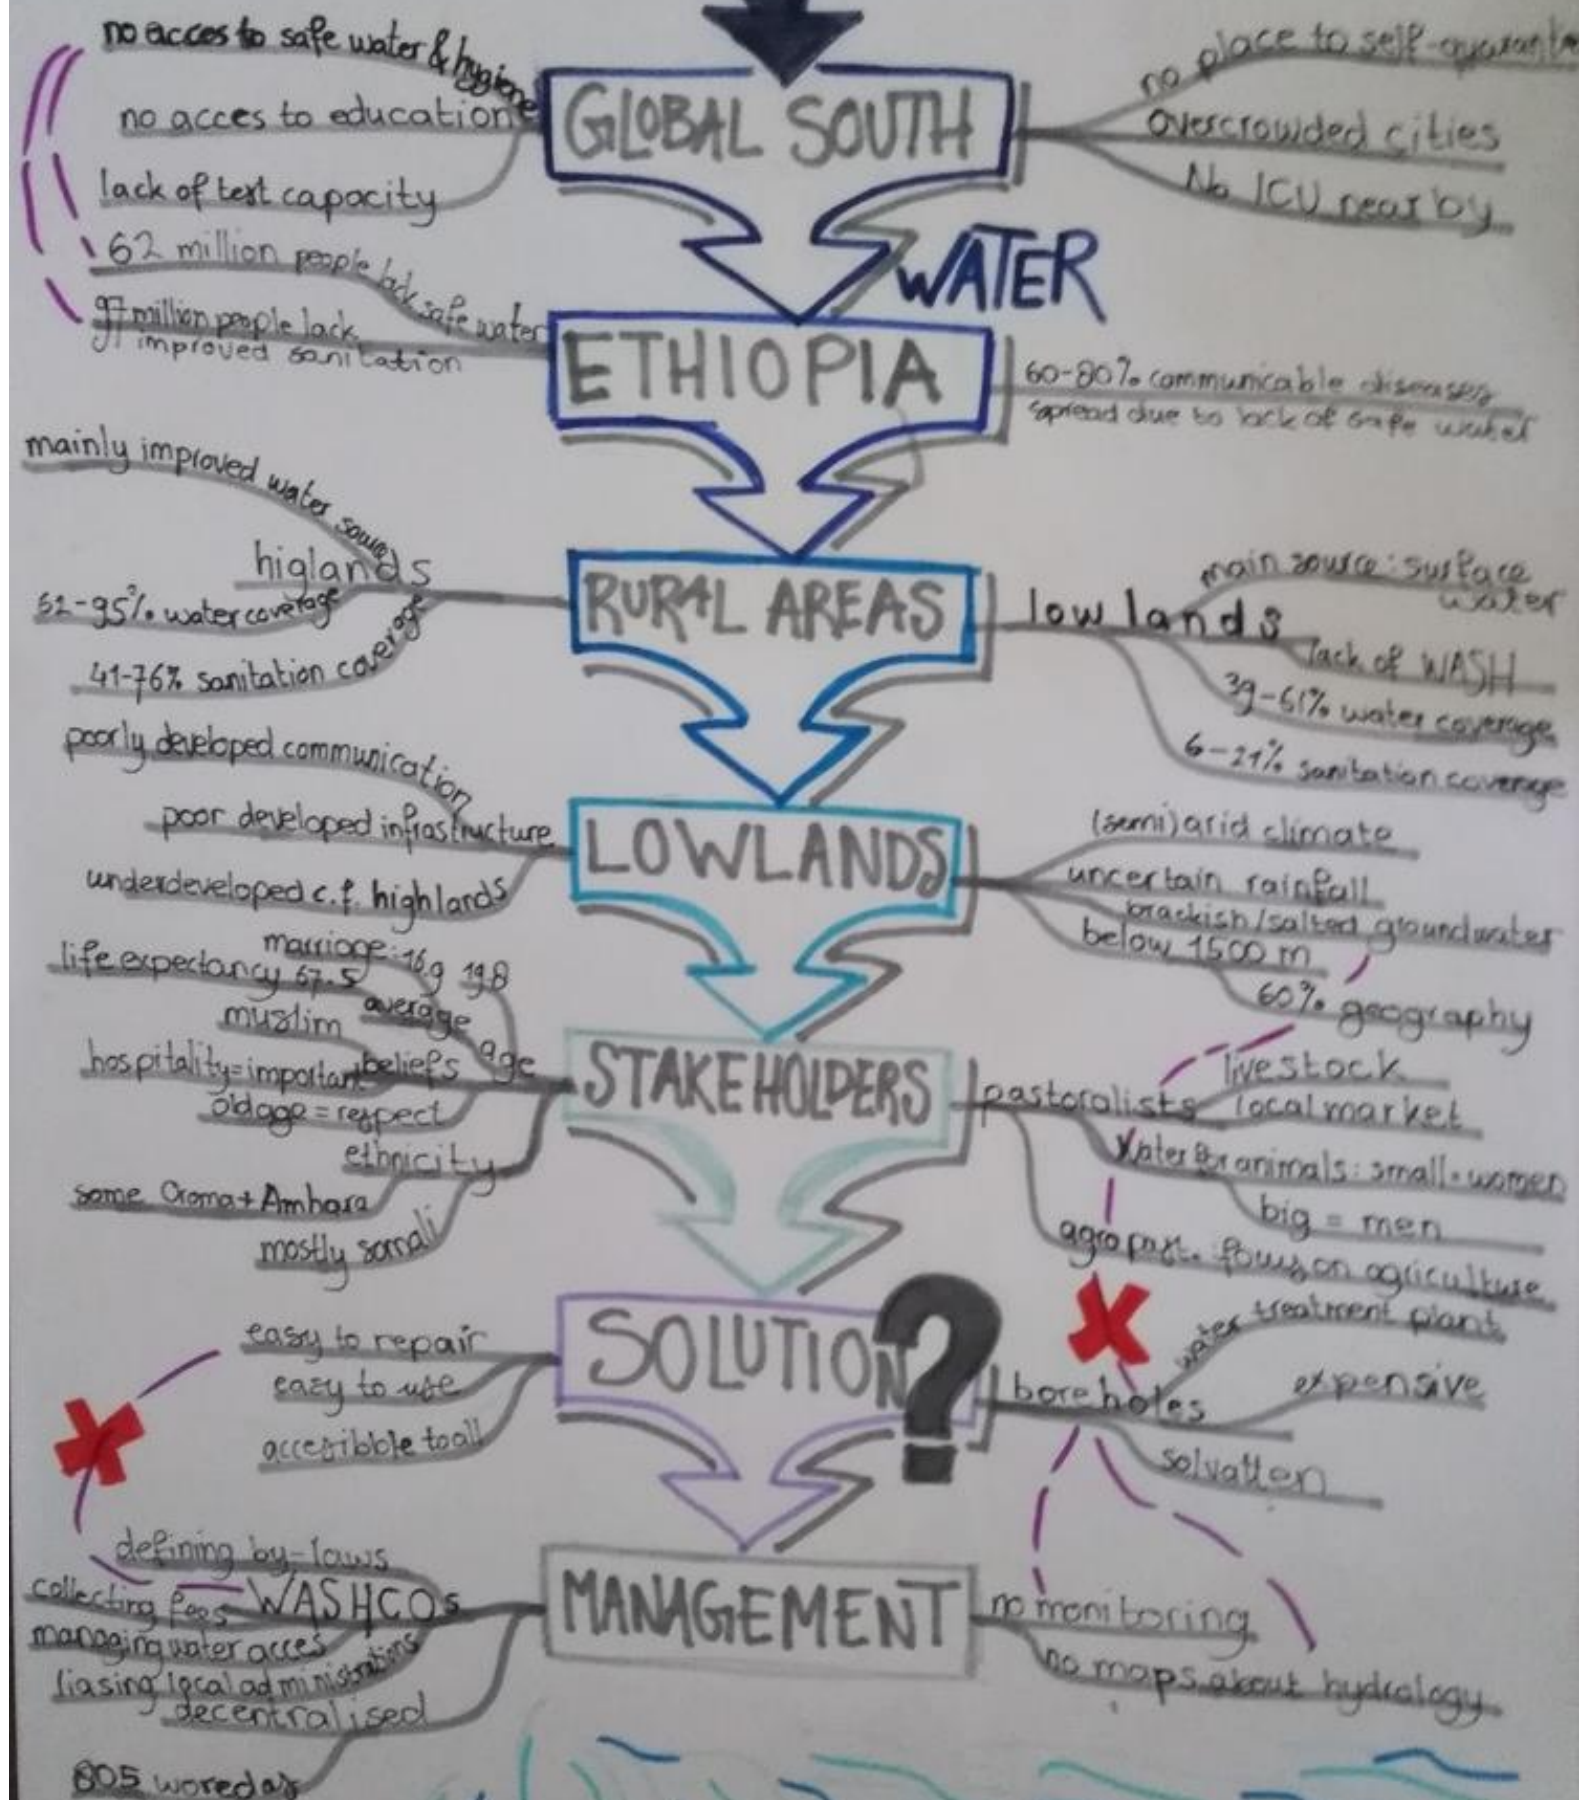 no acces to safe water & hygiene
no acces to education
lack of test capacity
GLOBAL SOUTH
no place to self-quarantine
overcrowded cities
No ICU nearby
WATER
62 million people lack safe water
97 million people lack
improved sanitation
ETHIOPIA
60-80% communicable diseases
spread due to lack of safe water
mainly improved water source
higlands
52-95% water coverage
41-76% sanitation coverage
RURAL AREAS
lowlands
main source: surface
water
lack of WASH
39-61% water coverage
6-21% sanitation coverage
poorly developed communication
poor developed infrastructure
underdeveloped c.f. highlands
LOWLANDS
(semi)arid climate
uncertain rainfall
brackish/salted groundwater
below 1500 m
60% geography
marriage: 16.9 19.8
life expectancy 67.5
average
age
muslim
beliefs
hospitality=important
old age = respect
ethnicity
some Oromo + Amhara
mostly somali
STAKEHOLDERS
pastoralists
livestock
local market
water for animals: small = women
big = men
agropast. focus on agriculture
easy to repair
easy to use
accesibble to all
SOLUTION?
boreholes
water treatment plant
expensive
solvatten
defining by-laws
collecting fees
WASHCOs
managing water acces
liasing local administrations
decentralised
805 woredas
MANAGEMENT
no monitoring
no maps about hydrology